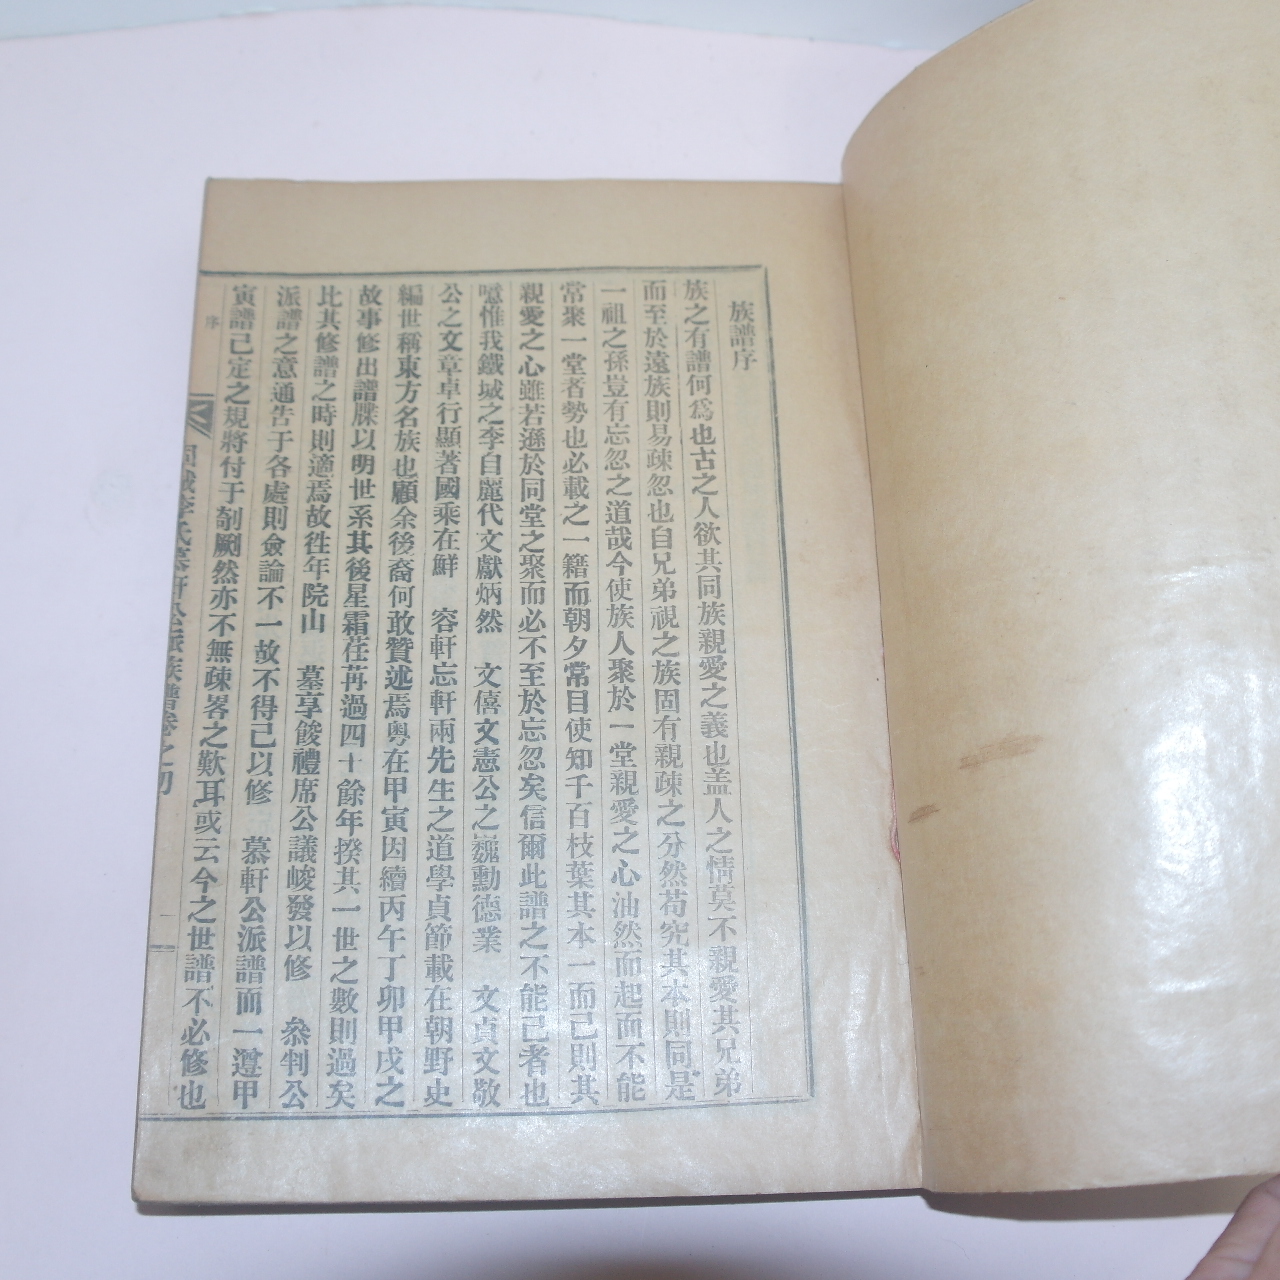 族譜序
族之有譜何爲也古之人欲其同族親愛之義也盖人之情莫不親愛其兄弟
而至於遠族則易疎忽也自兄弟視之族固有親疎之分然苟究其本則同是
一祖之孫豈有忘忽之道哉今使族人聚於一堂親愛之心油然而起而不能
常聚一堂者勢也必載之一籍而朝夕常目使知千百枝葉其本一而已則其
親愛之心雖若遜於同堂之聚而必不至於忘忽矣信爾此譜之不能已者也
噫惟我鐵城之李自麗代文獻炳然 文僖文憲公之巍勳德業 文貞文敬
公之文章卓行顯著國乘在鮮 容軒忘軒兩先生之道學貞節載在朝野史
編世稱東方名族也顧余後裔何敢贊述焉粤在甲寅因續丙午丁卯甲戌之
故事修出譜牒以明世系其後星霜荏苒過四十餘年揆其一世之數則過矣
比其修譜之時則適焉故徃年院山 墓享餕禮席公議峻發以修 叅判公
派譜之意通告于各處則僉論不一故不得已以修 慕軒公派譜而一遵甲
寅譜已定之規將付于剞劂然亦不無疎畧之歎耳或云今之世譜不必修也
序
固城李氏慕軒公派族譜卷之初